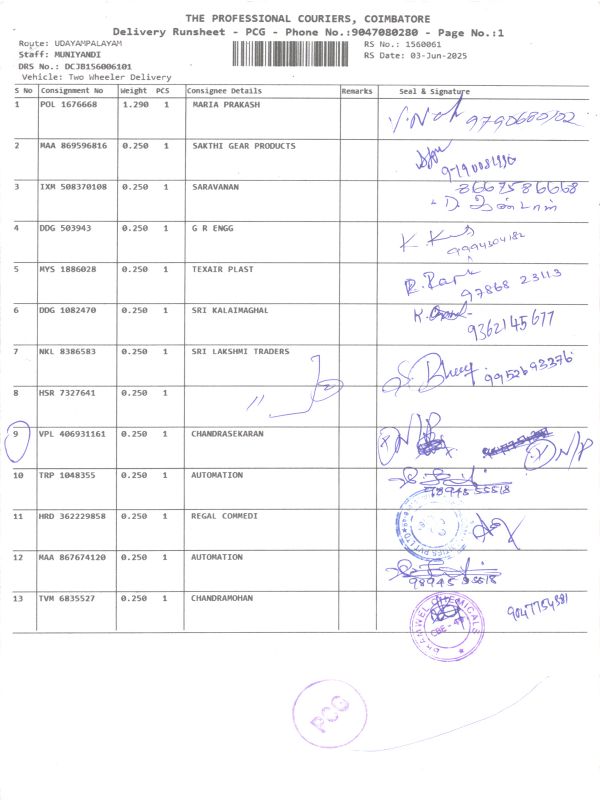 THE PROFESSIONAL COURIERS, COIMBATORE
Delivery Runsheet - PCG - Phone No.:9047080280 - Page No.:1
Route: UDAYAMPALAYAM RS No.: 1560061
Staff: MUNIYANDI RS Date: 03-Jun-2025
DRS No.: DCJB156006101
Vehicle: Two Wheeler Delivery
S No Consignment No Weight PCS Consignee Details Remarks Seal & Signature
1 POL 1676668 1.290 1 MARIA PRAKASH
2 MAA 869596816 0.250 1 SAKTHI GEAR PRODUCTS
3 IXM 508370108 0.250 1 SARAVANAN 8667586668
4 DDG 503943 0.250 1 G R ENGG 9994304182
5 MYS 1886028 0.250 1 TEXAIR PLAST 97868 23113
6 DDG 1082470 0.250 1 SRI KALAIMAGHAL 9362145677
7 NKL 8386583 0.250 1 SRI LAKSHMI TRADERS 9952693376
8 HSR 7327641 0.250 1 "
9 VPL 406931161 0.250 1 CHANDRASEKARAN N/P N/P
10 TRP 1048355 0.250 1 AUTOMATION 98945 55518
11 HRD 362229858 0.250 1 REGAL COMMEDI
12 MAA 867674120 0.250 1 AUTOMATION 98945 55518
13 TVM 6835527 0.250 1 CHANDRAMOHAN
PCG